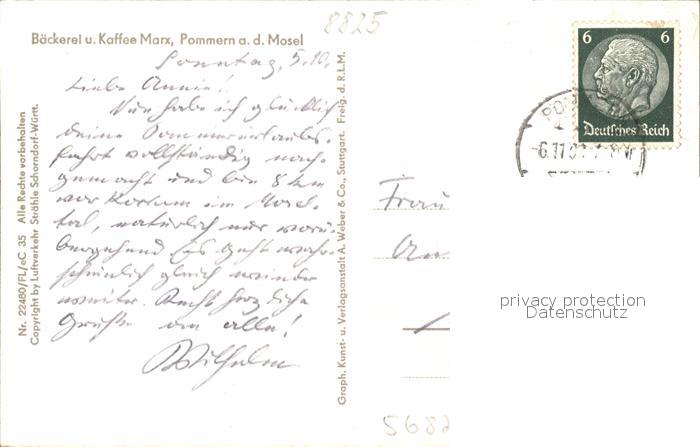 8825
Bäckerei u. Kaffee Marx, Pommern a. d. Mosel
Sonntag, 5.10.
Liebe Annie!
Nun habe ich glücklich
deine Sommerurlaubs-
fahrt vollständig nach-
gemacht und bin 8 km
vor im
tal, natürlich nur vorü-
bergehend. Es geht wahr-
scheinlich gleich wieder
weiter. Recht herzliche
Grüße an alle!
Wilhelm
Nr. 22480/FL/eC 35 Alle Rechte vorbehalten
Copyright by Luftverkehr Strähle Schorndorf-Württ.
Graph. Kunst- u. Verlagsanstalt A. Weber & Co., Stuttgart. Freig. d. R.L.M.
6 6
Deutsches Reich
Frau
An
privacy protection
Datenschutz
5682